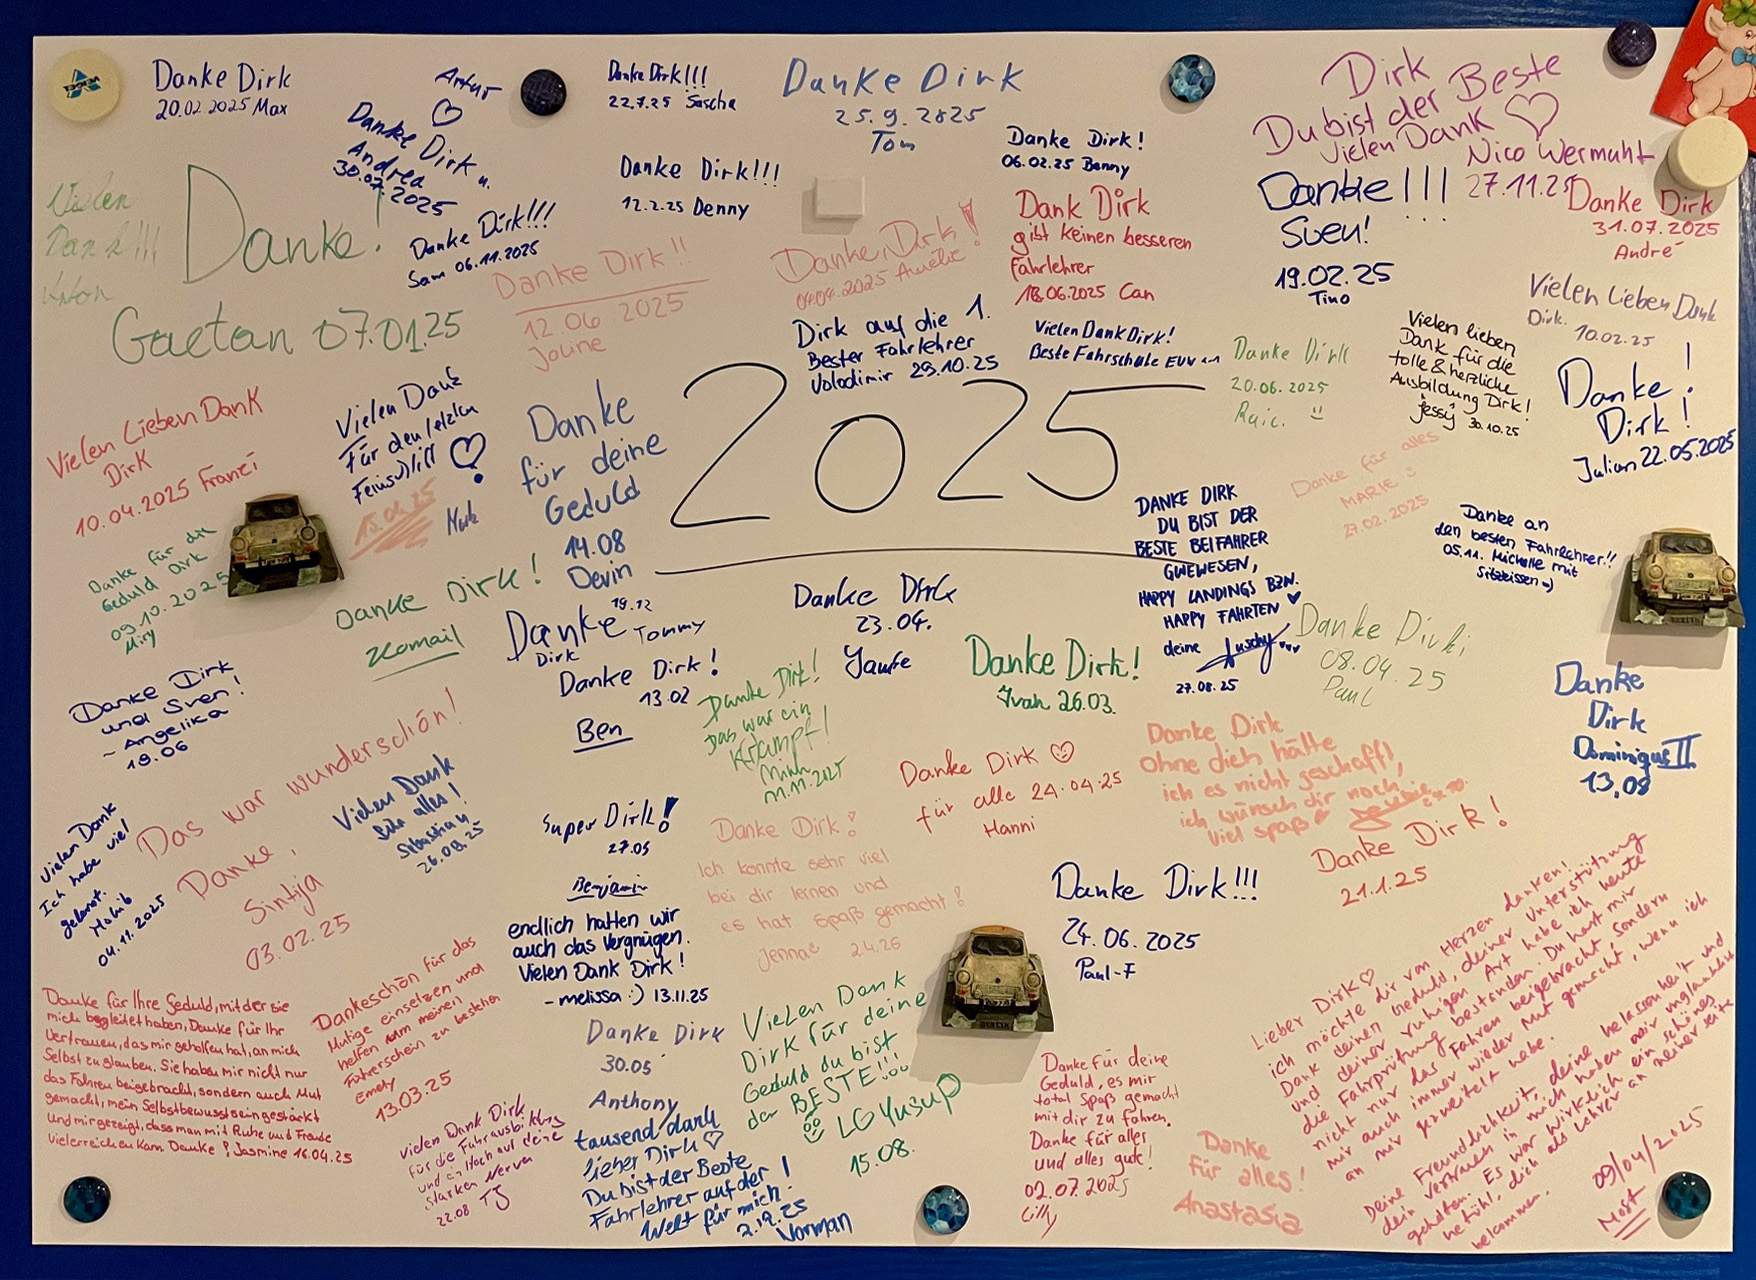 Danke Dirk
20.02.2025 Max
Artur
Danke Dirk u.
Andrea
30.07.2025
Danke Dirk!!!
22.7.25 Sascha
Danke Dirk
25.9.2025
Tom
Danke Dirk!
06.02.25 Benny
Dirk
Du bist der Beste
Vielen Dank
Nico Wermuht
27.11.25
Vielen
Dank!!!
Anton
Danke!
Gaetan 07.01.25
Danke Dirk!!!
Sam 06.11.2025
Danke Dirk!!!
12.2.25 Denny
Danke Dirk!!
12.06 2025
Danke, Dirk!
04.04.2025 Amélie
Dank Dirk
gibt keinen besseren
Fahrlehrer
18.06.2025 Can
Danke!!!
Sven!
19.02.25
Tino
Danke Dirk
31.07.2025
André
Vielen Lieben Dank
Dirk. 10.02.25
Dirk auf die 1.
Bester Fahrlehrer
Volodimir 29.10.25
Vielen Dank Dirk!
Beste Fahrschule
Danke Dirk
20.06.2025
Vielen lieben
Dank für die
tolle & herzliche
Ausbildung Dirk!
Jessy 30.10.25
Danke!
Dirk!
Julian 22.05.2025
2025
Vielen Lieben Dank
Dirk
10.04.2025 Franzi
Vielen Dank
Für den letzten
Feinschliff
15.04.25
Danke
für deine
Geduld
14.08
Devin
Danke für alles
MARIE
27.02.2025
DANKE DIRK
DU BIST DER
BESTE BEIFAHRER
GWEWESEN,
HAPPY LANDINGS BZW.
HAPPY FAHRTEN
deine
27.08.25
Danke an
den besten Fahrlehrer!!
05.11. Michelle mit
Sitzkissen =)
Danke für die
Geduld Dirk
09.10.2025
Miry
Danke Dirk!
Komail
Danke 19.12
Dirk Tommy
Danke Dirk!
13.02
Ben
Danke Dirk
23.04.
Danke Dirk!
Ivan 26.03.
Danke Dirk;
08.04.25
Paul
Danke
Dirk
Dominigus II
13.08
Danke Dirk
und Sven!
~ Angelika
18.06
Danke Dirk!
Das war ein
Krampf!
11.11.2025
Danke Dirk
für alle 24.04.25
Hanni
Danke Dirk
ohne dich hätte
ich es nicht geschafft,
ich wünsch dir noch
viel spaß
Das war wunderschön!
Danke,
Sintija
03.02.25
Vielen Dank
für alles!
Sebastian
26.08.25
Vielen Dank
Ich habe viel
gelernt.
04.11.2025
Super Dirk!
27.05
Benjamin
Danke Dirk!
Ich konnte sehr viel
bei dir lernen und
es hat Spaß gemacht!
Danke Dirk!
21.1.25
Danke Dirk!!!
24.06.2025
Paul-F
endlich hatten wir
auch das Vergnügen.
Vielen Dank Dirk!
- melissa :) 13.11.25
Danke für Ihre Geduld, mit der sie
mich begleitet haben, Danke für Ihr
Vertrauen, das mir geholfen hat, an mich
Selbst zu glauben. Sie haben mir nicht nur
das Fahren beigebracht, sondern auch Mut
gemacht, mein Selbstbewusstsein gestärkt
und mir gezeigt, dass man mit Ruhe und Freude
viel erreichen kann Danke! Jasmine 16.04.25
Dankeschön für das
Mutige einsetzen und
helfen meinen
Führerschein zu bestehen
Emely
13.03.25
vielen Dank Dirk
für die Fahrausbildung
und ein Hoch auf deine
starken Nerven
22.08 TJ
Danke Dirk
30.05
Anthony
tausend dank
lieber Dirk
Du bist der Beste
Fahrlehrer auf der
Welt für mich!
Norman
Vielen Dank
Dirk für deine
Geduld du bist
der BESTE!!
LG Yusup
15.08.
Danke für deine
Geduld, es mir
total Spaß gemacht
mit dir zu fahren.
Danke für alles
und alles gute!
02.07.2025
Lilly
Danke
für alles!
Anastasia
Lieber Dirk
ich möchte dir von Herzen danken!
Dank deiner Geduld, deiner Unterstützung
und deiner ruhigen Art habe ich heute
die Fahrprüfung bestanden. Du hast mir
nicht nur das Fahren beigebracht, sondern
mir auch immer wieder Mut gemacht, wenn ich
an mir gezweifelt habe.
Deine Freundlichkeit, deine Gelassenheit und
dein Vertrauen in mich haben mir unglaublich
geholfen. Es war wirklich ein schönes
Gefühl, dich als Lehrer an meiner Seite
bekommen.
09/04/2025